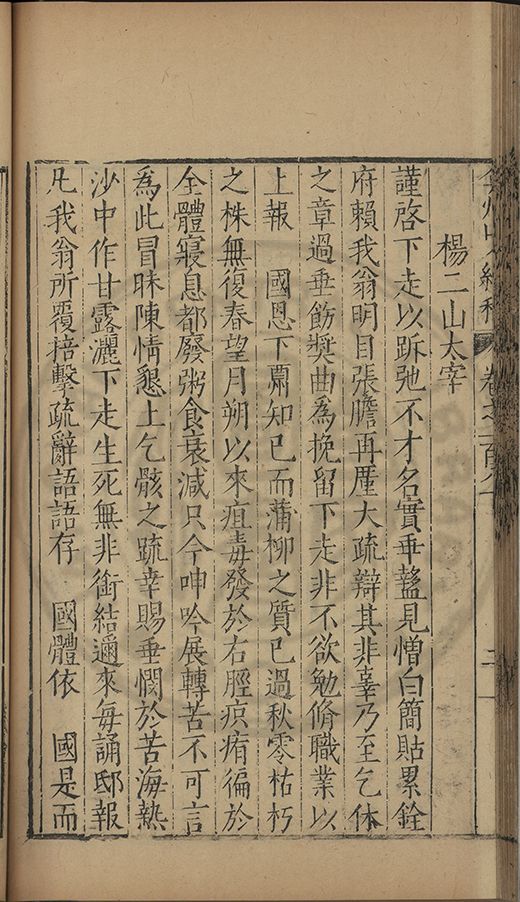 弇州山人續稿 卷之一百八十 二
楊二山太宰
謹啓下走以跅弛不才名實乖盭見憎白簡貼累銓
府賴我翁明目張膽再厪大疏辯其非辜乃至乞休
之章過垂飭奬曲為挽留下走非不欲勉脩職業以
上報 國恩下鬻知已而蒲柳之質已過秋零枯朽
之株無復春望月朔以來疽毒發於右脛疻痏徧於
全體寢息都廢粥食衰減只今呻吟展轉苦不可言
為此冒昧陳情懇上乞骸之疏幸賜垂憫於苦海熱
沙中作甘露灑下走生死無非銜結邇來每誦邸報
凡我翁所覆掊擊疏辭語語存 國體依 國是而